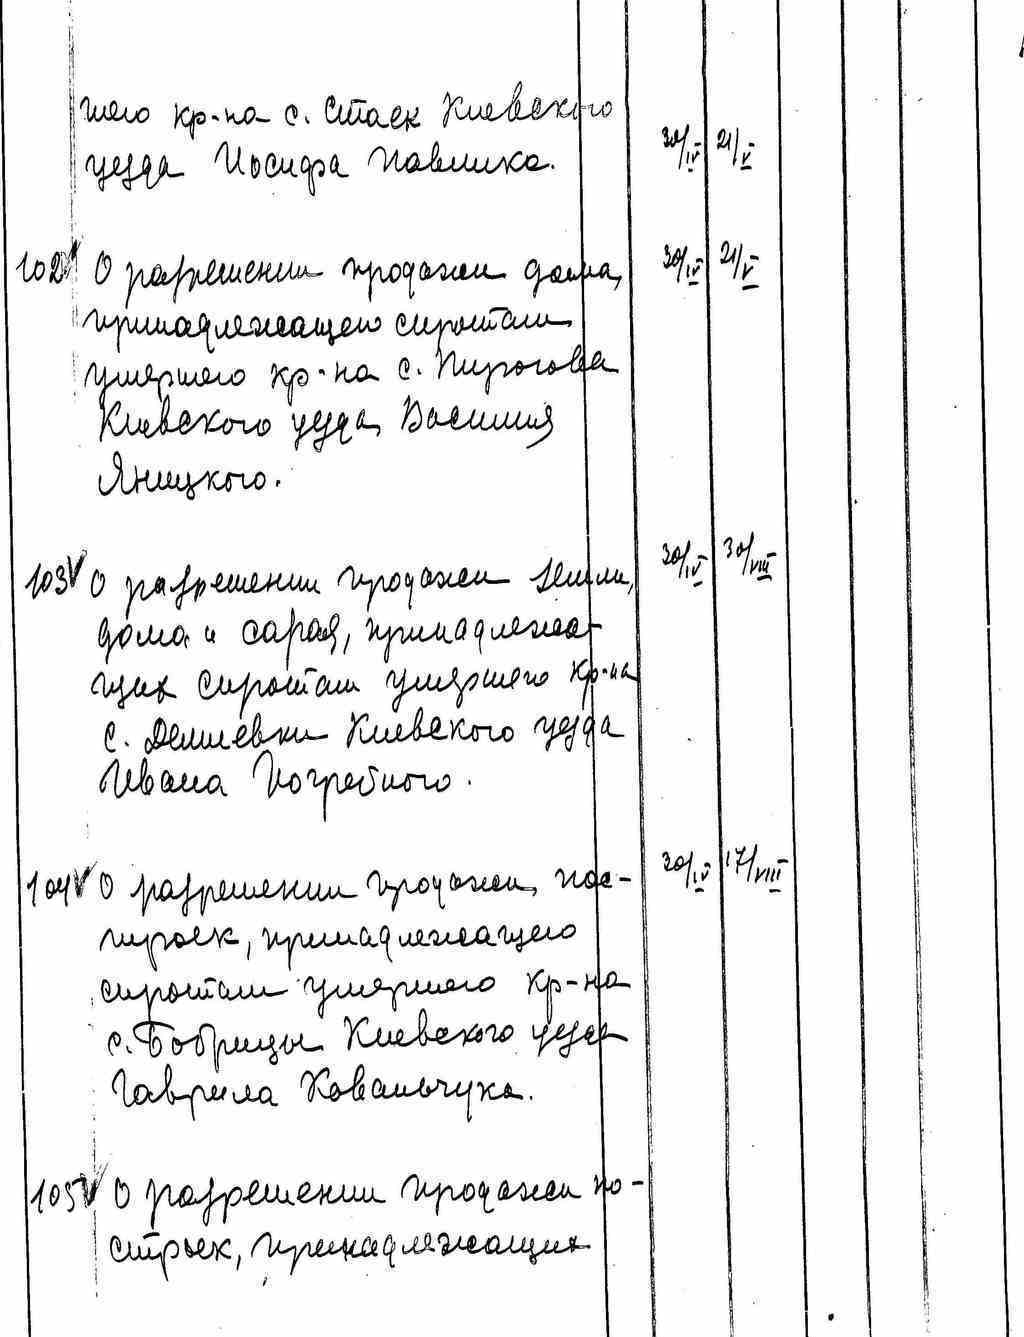 шего кр-на с. Стаек Киевского
уезда Иосифа Павлика. 30/IV 21/V
102 О разрешении продажи дома, 30/IV 21/V
принадлежащего сиротам
умершего кр-на с. Пирогова
Киевского уезда Василия
Яницкого.
103 О разрешении продажи земли, 30/IV 30/VIII
дома и сарая, принадлежа-
щих сиротам умершего кр-на
с. Демиевки Киевского уезда
Ивана Погребного.
104 О разрешении продажи пос- 30/IV 17/VIII
троек, принадлежащего
сиротам умершего кр-на
с. Бобрицы Киевского уезда
Гаврила Ковальчука.
105 О разрешении продажи по-
строек, принадлежащих